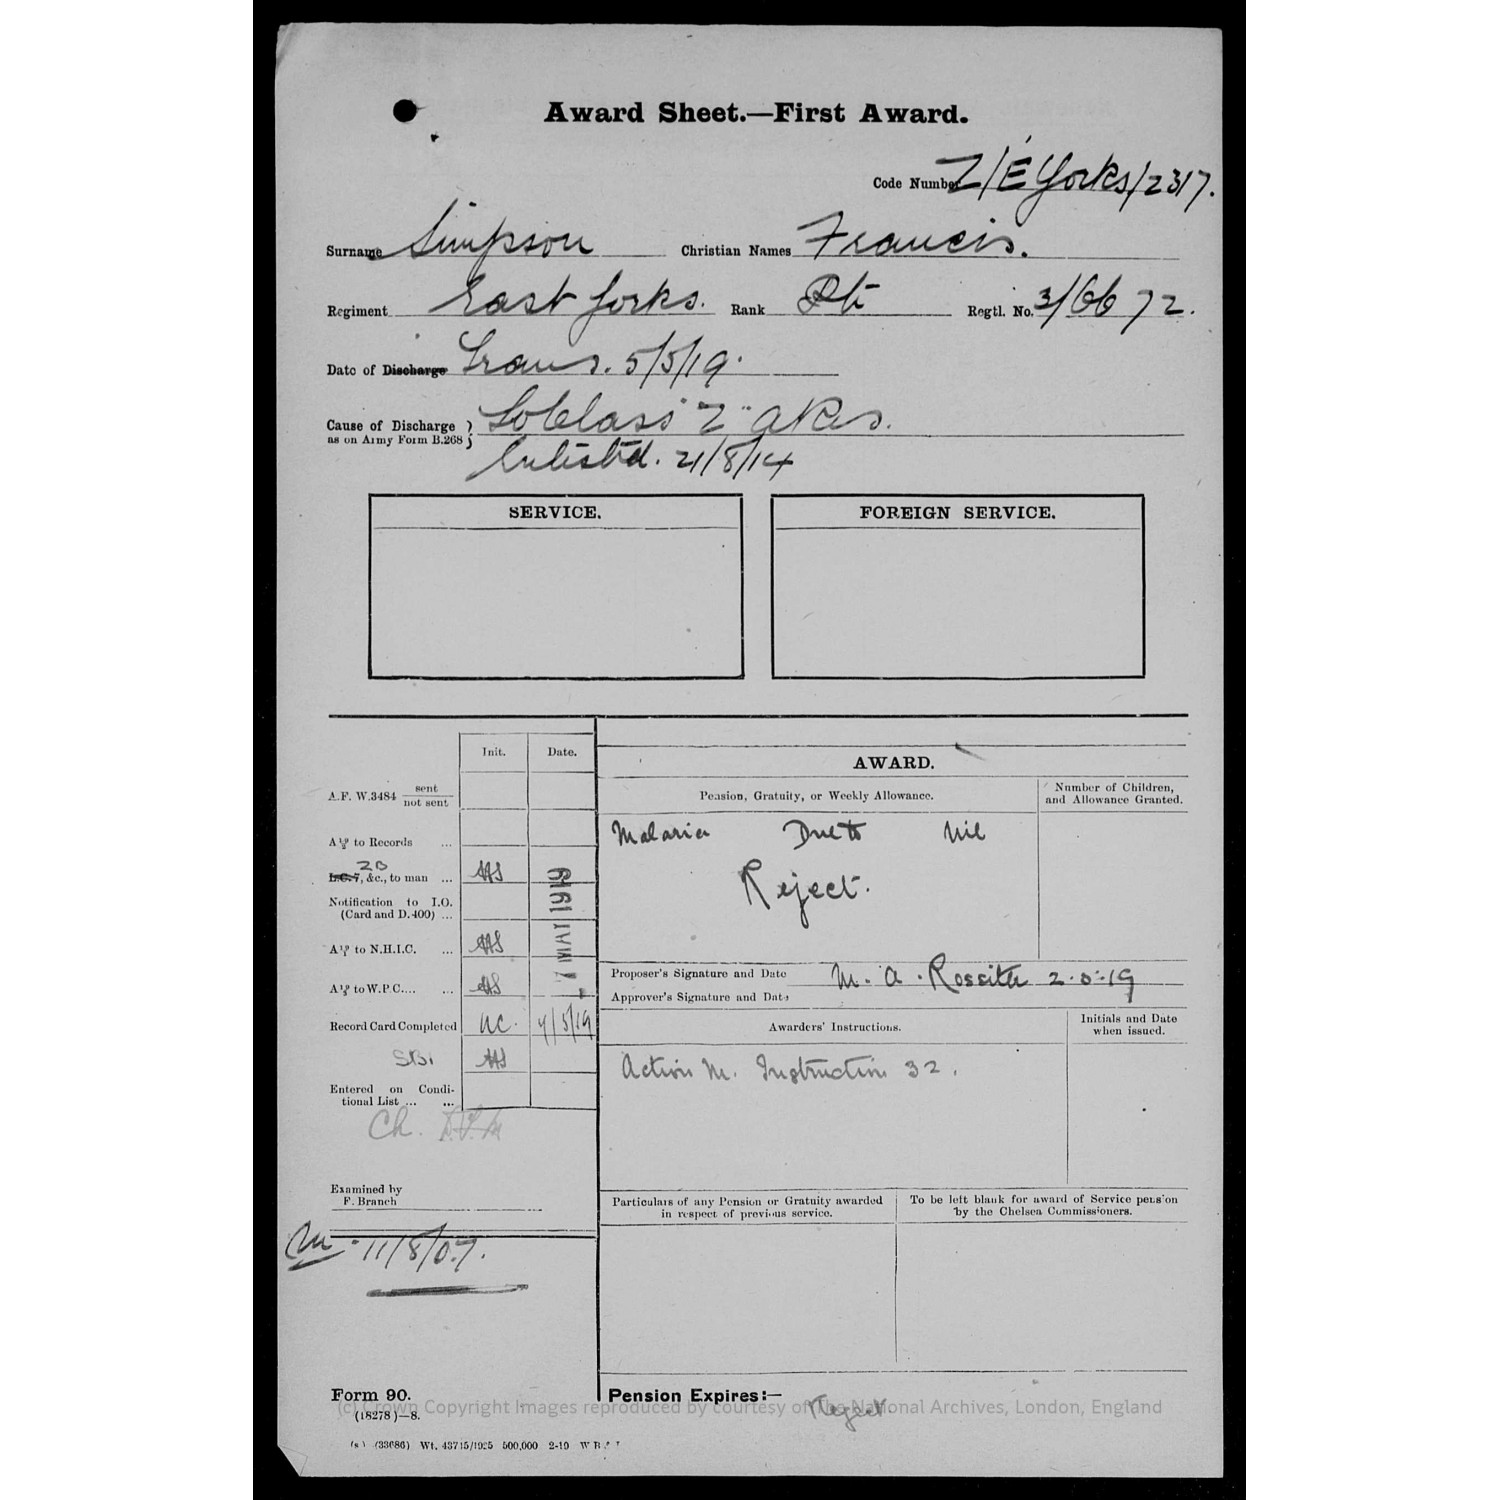 Award Sheet.—First Award.
Code Number Z/E Yorks/2317.
Surname Simpson Christian Names Francis.
Regiment East Yorks. Rank Pte Regtl. No. 3/6672.
Date of Discharge Trans. 5/5/19.
Cause of Discharge } To Class "Z" A Res.
as on Army Form B.268 }
Enlisted. 21/8/14
SERVICE. FOREIGN SERVICE.
Init. Date.
AWARD.
A.F. W.3484 sent
not sent
Pension, Gratuity, or Weekly Allowance.
Number of Children,
and Allowance Granted.
Malaria Due to Nil
Reject.
to Records ...
ZB
&c., to man ...
Notification to I.O.
(Card and D.400) ...
to N.H.I.C. ...
to W.P.C.... ...
MAY 1919
Proposer's Signature and Date M. A. Rossiter 2.5.19
Approver's Signature and Date
Record Card Completed 7/5/19
Awarders' Instructions.
Initials and Date
when issued.
Action M. Instruction 32.
Entered on Condi-
tional List ... ...
Ch.
Examined by
F. Branch
Particulars of any Pension or Gratuity awarded
in respect of previous service.
To be left blank for award of Service pension
by the Chelsea Commissioners.
M - 11/8/07.
Form 90.
(18278)—8.
Pension Expires:— Reject.
(c) Crown Copyright Images reproduced by courtesy of The National Archives, London, England
(33686) Wt. 43715/1925 500,000 2-19